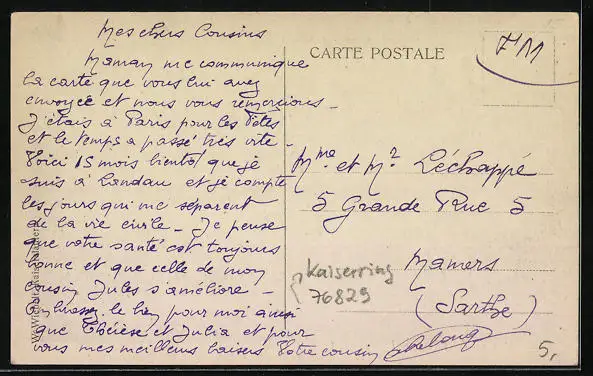 Mes chers Cousins
Maman me communique
la carte que vous lui avez
envoyée et nous vous remercions -
J'étais à Paris pour les fêtes
et le temps a passé très vite -
Voici 15 mois bientôt que je
suis à Landau et je compte
les jours qui me séparent
de la vie civile - Je pense
que votre santé est toujours
bonne et que celle de mon
cousin Jules s'améliore -
Embrassez le bien pour moi ainsi
que Thérèse et Julia et pour
vous mes meilleurs baisers Votre cousin
CARTE POSTALE
FM
Mme et Mr Léchappé
5 Grande Rue 5
Mamers
(Sarthe)
Kaiserring
76829
5,